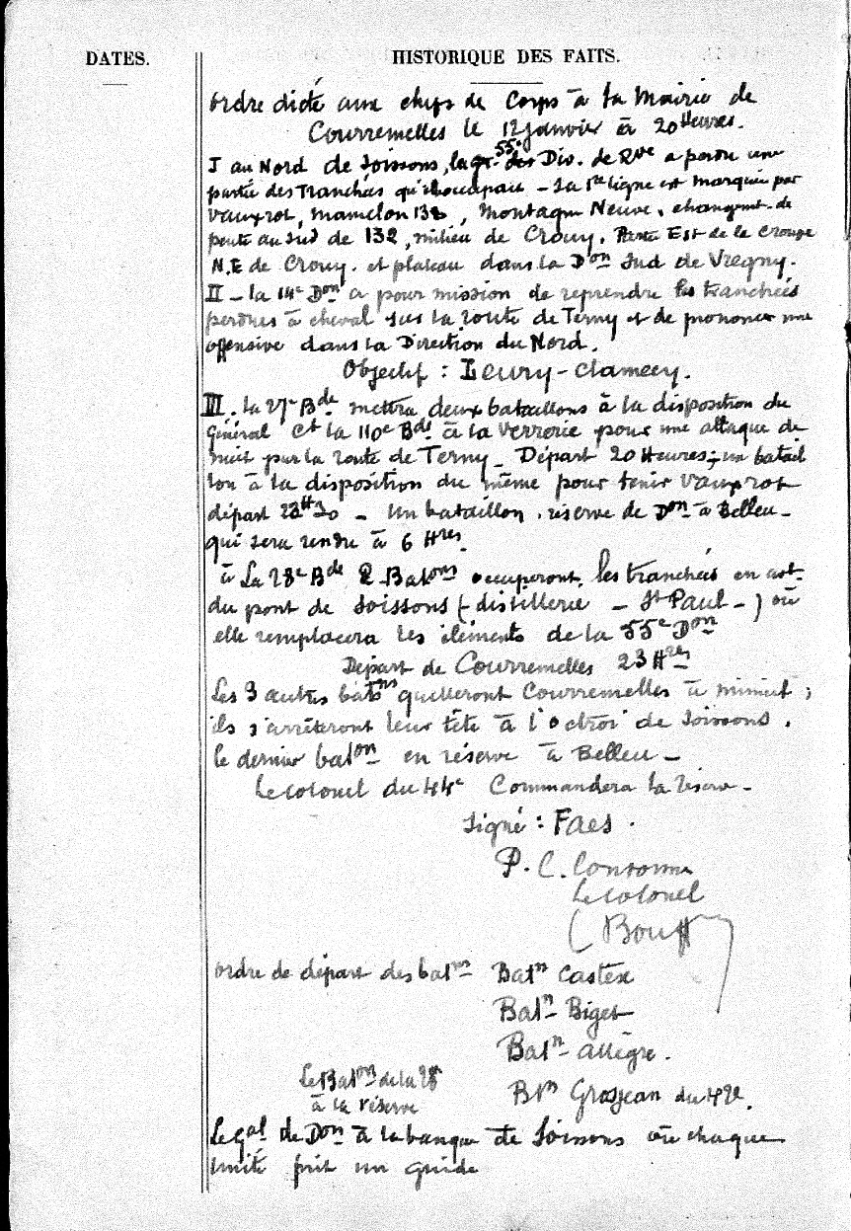 DATES.
HISTORIQUE DES FAITS.
ordre dicté aux chefs de Corps à la Mairie de
Courremelles le 12 Janvier à 20 Heures.
I au Nord de Soissons, la 55e Div. de Rve a perdu une
partie des Tranchées qu'elle occupait - La 1re ligne est marquée par
Vauxrot, mamelon 132, Montagne Neuve, changemt de
pente au Sud de 132, milieu de Crouy, Partie Est de le Croupe
N.E de Crouy. et plateau dans la Don Sud de Vregny.
II - la 14e Don a pour mission de reprendre les tranchées
perdues à cheval sur la route de Terny et de prononcer une
offensive dans la Direction du Nord.
Objectif : Leury-Clamecy.
III. la 27e Bde mettra deux bataillons à la disposition du
Général Ct la 110e Bde à la Verrerie pour une attaque de
nuit par la route de Terny - Départ 20 Heures ; un batail
lon à la disposition du même pour tenir Vauxrot
départ 23H30 - Un bataillon réserve de Don à Belleu -
qui sera rendu à 6 Hres.
à La 28e Bde 2 Batons occuperont les tranchées en avt
du pont de Soissons (- distillerie - St Paul -) où
elle remplacera les éléments de la 55e Don
Départ de Courremelles 23 Hres
Les 3 autres batons quitteront Courremelles à minuit ;
ils s'arrêteront leur tête à l'octroi de Soissons.
le dernier baton en réserve à Belleu -
Le Colonel du 44e Commandera la réserve -
Signé : Faes.
P. C. Conforme
Le Colonel
Bouff
ordre de départ des batons Batn Castex
Batn Biget
Batn allègre.
Le Baton de la 28e
à la réserve
Btn Grosjean du 42e.
Le Gal de Don à la banque de Soissons où chaque
unité prit un guide